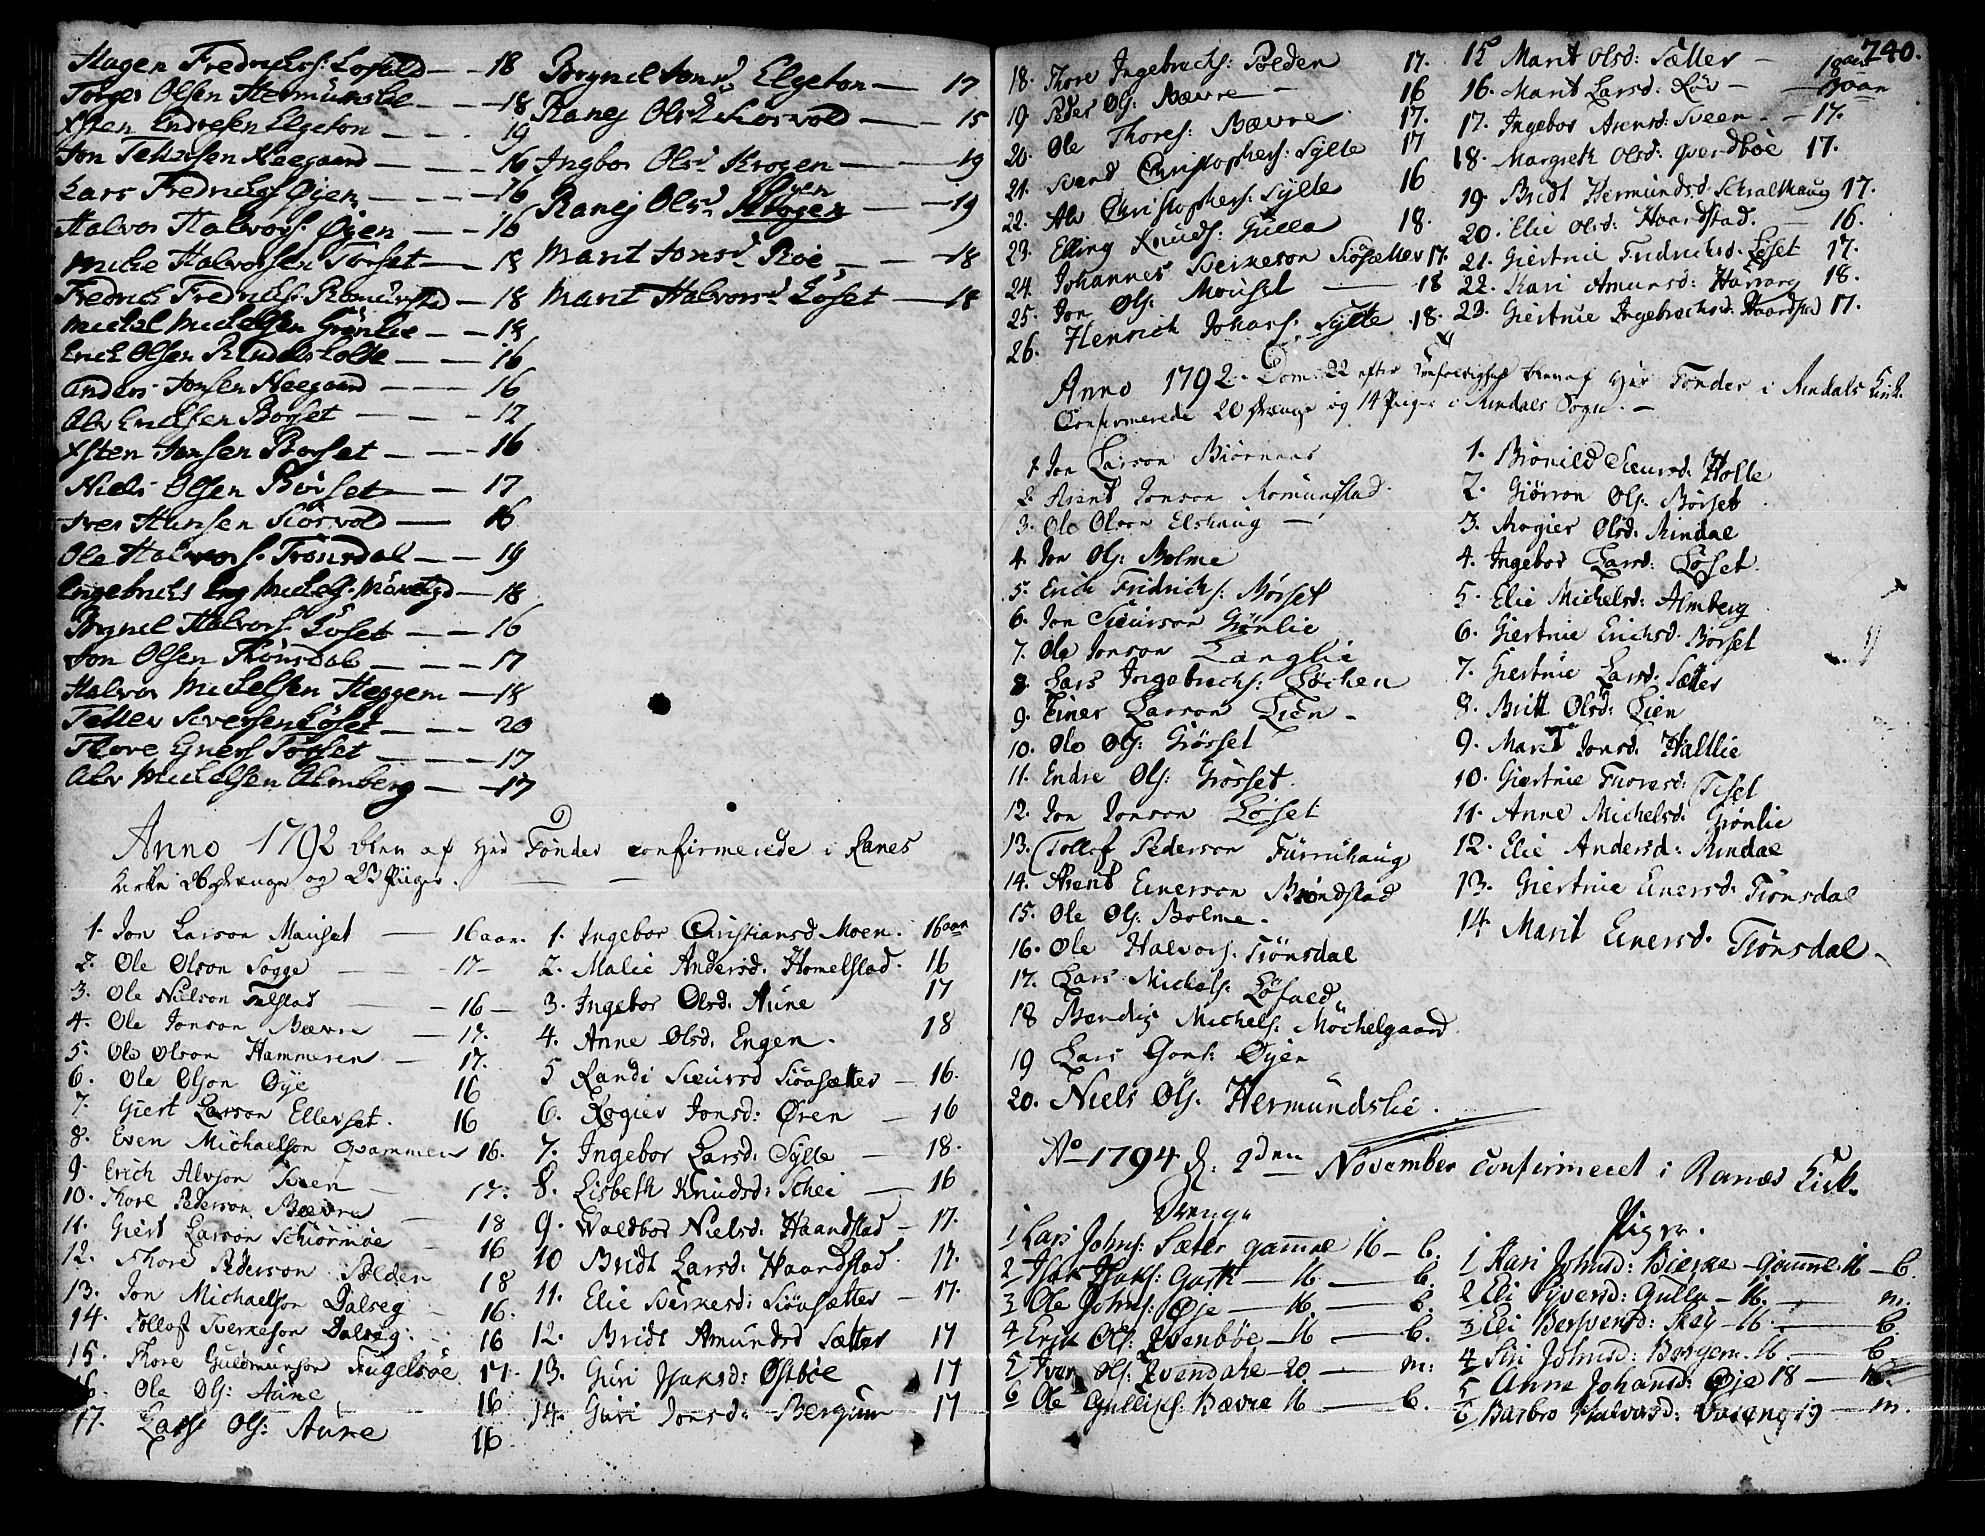 Hagen Fredrichs: Løfald — 18
Torger Olsen Hermunslie — 18
Østen Endresen Elgeton — 19
Jon Tellefsen Neegaard — 16
Lars Fredrichs Øyen — 16
Halvor Halvors. Øyen — 16
Miche Halvorsen Torset — 18
Fredrich Fredrichs: Romunstad — 18
Michel Michelsen Grønlie — 18
Erich Olsen Rindals Holte — 16
Anders Jonsen Neegaard — 16
Alv Erichsen Børset — 17
Østen Jonsen Børset — 16
Niels Olsen Børset — 17
Iver Hansen Skorvold — 16
Ole Halvors. Trønsdal — 19
Engebricht Michels: — 18
Brynel Halvors. Løset — 16
Jon Olsen Trønsdal — 17
Halvor Michelsen Heggem — 18
Teller Siversen Løset — 20
Thore Eners Torset — 17
Alv Michelsen Almberg — 17
Brynel Jonsd Elgeton — 17
Ranej Olsd Skorvold — 15
Ingbor Olsd Krogen — 19
Ranej Olsd Krogen — 19
Marit Jonsd Roe — 18
Marit Halvorsd Løset — 18
Anno 1792 blev af Hr Tønder confirmerede i Ranes
Kirke 26 Drenge og 23 Piiger.
1. Jon Larson Mauset — 16 aar.
2. Ole Olson Sogge — 17
3. Ole Nielson Talstad — 16
4. Ole Jonson Bævre — 17.
5. Ole Olson Hammeren — 17.
6. Ole Olson Øye 16
7. Giert Larson Ellevset. 16
8. Even Michaelson Qvammen 16.
9. Erich Alvson Sveen — 17.
10. Thore Pederson Bævre — 18
11. Giert Larson Schiørmoe — 16
12. Thore Pederson Polden 18
13. Jon Michaelson Dalseg — 16.
14. Tollof Sverkeson Dalseg. 16
15. Thore Guldmunson Fugelsøe 17.
16. Ole Ols: Aune 16
17. Lars Ols: Aune 16
1. Ingebor Christiansd Moen. 16 aar
2. Malie Andersd. Homelstad. 16
3. Ingebor Olsd. Aune 17
4. Anne Olsd. Engen. 18
5 Randi Siursd Siøasætter — 16.
6. Rogier Jonsd: Øren — 16
7. Ingebor Larsd: Sylte — 18.
8. Lisbeth Knudsd: Schei — 16
9. Waldbor Nielsd: Haandstad — 17.
10 Bridt Larsd: Haandstad 17.
11. Elie Sverkesd: Siøasætter — 17.
12. Bridt Amundsd Sætter 17
13. Guri Isaksd: Østbøe 17
14. Guri Jonsd: Bergum 17
740.
18. Thore Ingebrechs: Polden 17.
19. Peder Ols: Bævre — 16
20. Ole Thores: Bævre 17.
21. Svend Christophers: Sylte 17
22. Alv Christophers: Sylte 16
23. Elling Knuds: Gulla 18.
24. Johannes Sverkeson Siøsætter 17.
25. Jon Ols: Mouset — 18
26. Henrich Johans: Sylte 18.
15 Marit Olsd: Sætter — 18 aar
16. Marit Larsd: Løv —
17. Ingebor Arensd: Sveen — 17.
18. Margreth Olsd: Qvendbøe 17.
19. Bridt Hermundsd Schralthaug 17.
20. Elie Olsd: Haandstad. — 16.
21. Giertrue Fridrichsd: Løset 17.
22. Kari Amunsd: Harrang 18.
23. Giertrue Ingebrechsd: Haandstad 17.
Anno 1792. Dom: 22 efter Trefoldighed blev af Hr Tønder i Rindals Kirk
Confirmerede 20 Drenge og 14 Piiger i Rindals Sogn. —
1. Jon Larson Biørnaas
2. Arent Jonson Romunstad.
3. Ole Olson Elshaug —
4. Jon Ols: Bolme
5. Erich Fridrichs: Børset
6. Jon Siurson Grønlie
7. Ole Jonson Langlie
8. Lars Ingebrechs: Løchen
9. Einer Larson Lien —
10. Ole Ols: Grøsset
11. Endre Ols: Grøsset.
12. Jon Jonson Løset
13. Tollef Pederson Furruhaug
14. Arent Einerson Brøndstad
15. Ole Ols: Bolme.
16. Ole Halvors: Trønsdal
17. Lars Michels: Løfald
18 Bendix Michels: Møchelgaard.
19 Lars Gons: Øyen
20. Niels Ols. Hermundslie.
1. Brønild Siursd: Holte
2. Giørron Ols: Børset
3. Rogier Olsd: Rindal
4. Ingebor Larsd: Løset
5. Elie Michelsd: Almberg
6. Giertrue Erichsd. Børset
7. Giertrue Larsd. Sætter
8. Britt Olsd: Lien
9. Marit Jonsd: Haltlie
10. Giertrue Thoresd: Tiset
11. Anne Michelsd: Grønlie
12. Elie Andersd: Rindal
13. Giertrue Einersd: Trønsdal
14 Marit Einersd. Trønsdal
Ao 1794 d. 2den November confirmeret i Ranæs Kirk.
Drenge
1 Lars Johns: Sæter gamle 16 — b.
2 Isak Isaks: Gath — 16. — b.
3 Ole Johns: Øje — 16. — b.
4 Erik Ols: Qvenbøe — 16 — b.
5 Iver Ols: Qvendahl 20 — m:
6 Ole Gulliks: Bævre 16 — b.
Piger.
1 Kari Johnsd: Bierke — gamle 16 — b.
2 Eli Syversd: Gulla — 16. — m.
3 Eli Besvensd: Skey — 16. — b.
4 Siri Johnsd: Bergem. 16 — b.
5 Anne Johansd: Øje 18 — b.
6 Barbro Halvorsd: 19 — m.